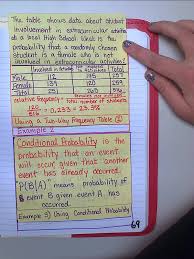 The table shows data about student
involvement in extracurricular activities
at a local High School. What is the
probability that a randomly chosen
student is a female who is not
involved in extracurricular activities?
Total
Male 112 145 257
Female 139 120 259
Total 251 265 516
relative frequency: Total number of students
120
516
≈ 0.233 ≈ 23.3%
Using a Two-Way Frequency Table
Example 2
Conditional Probability is the
probability that an event
will occur given that another
event has already occurred.
P(B|A) means probability of
B event B given event A has
occurred.
Example 3) Using Conditional Probability
69